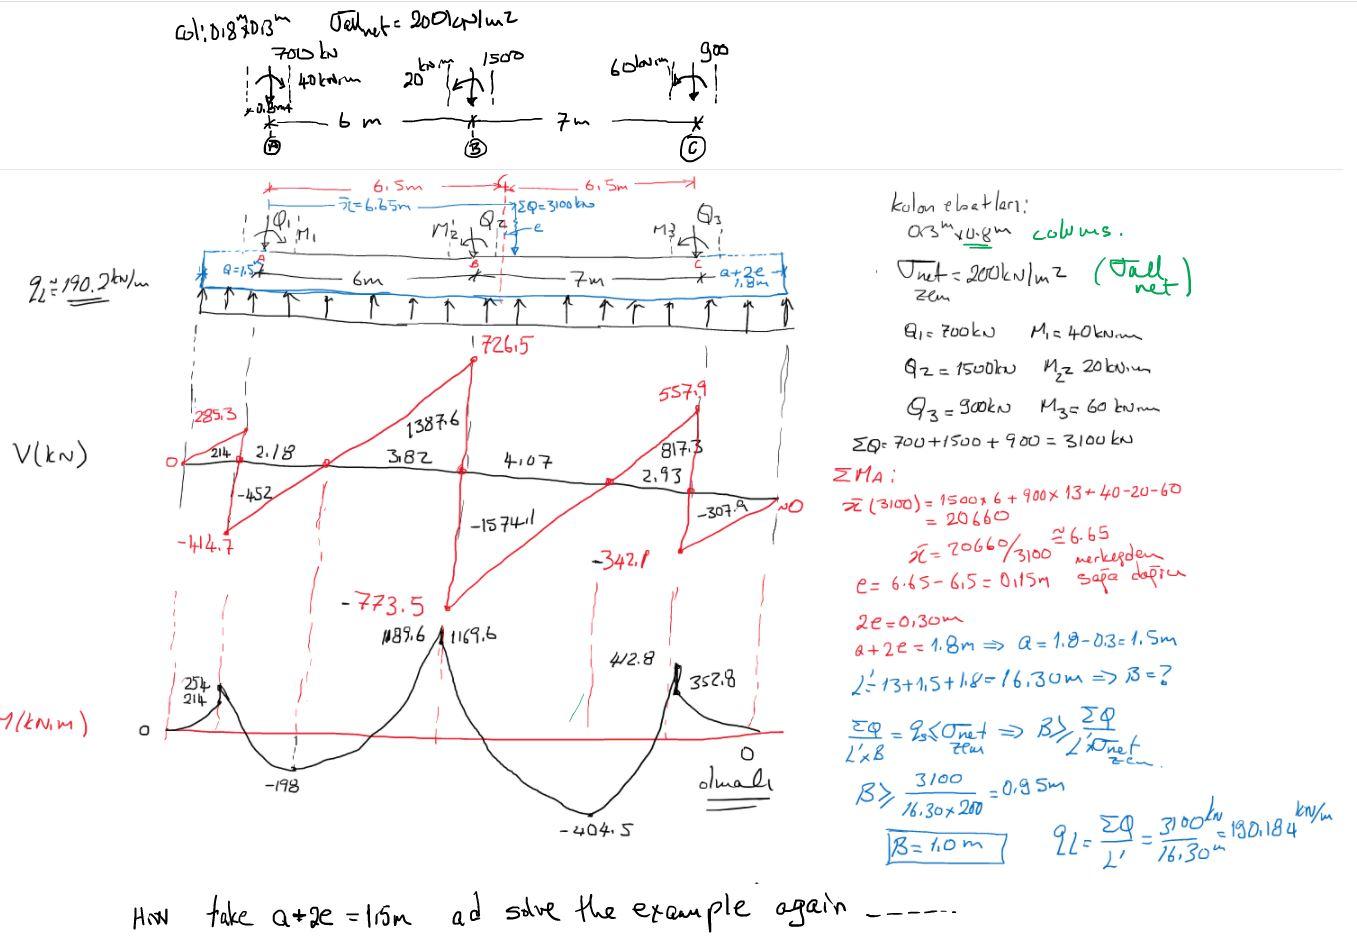 col: 0.8ᵐx0.3ᵐ σall net = 200 kN/m²
700 kN
40 kN.m
20 kN.m
1500
60 kN.m
900
6 m
7m
A
B
C
6.5m
6.5m
x̄=6.65m
ΣQ=3100kN
e
Q1
M1
M2
Q2
M3
Q3
A
B
C
a=1.5m
6m
7m
a+2e
1.8m
qL ≅ 190.2 kN/m
V(kN)
0
285.3
214
2.18
-452
-414.7
3.82
1387.6
726.5
4.07
-1574.1
-773.5
557.9
817.3
2.93
-307.9
-342.1
≈0
M(kN.m)
0
254
214
-198
1189.6
1169.6
-404.5
412.8
352.8
0
olmalı
kolon ebatları:
0.3ᵐx0.8m colums.
σnet zem = 200kN/m² (σall net)
Q1= 700kN M1= 40kN.m
Q2 = 1500kN M2= 20kN.m
Q3 = 900kN M3= 60 kN.m
ΣQ= 700+1500+900 = 3100 kN
ΣMA:
x̄(3100) = 1500x6 + 900x13 + 40-20-60
= 20660
x̄= 20660/3100 ≅ 6.65
merkezden
e= 6.65-6.5= 0.15m sağa doğru
2e=0,30m
a+2e = 1.8m ⇒ a=1.8-0.3=1.5m
L'=13+1.5+1.8=16.30m ⇒ B=?
ΣQ/L'xB = qs≤σnet zem ⇒ B≥ ΣQ/L'xσnet zem
B≥ 3100/16.30x200 = 0.95m
B= 1.0 m
qL= ΣQ/L' = 3100kN/16.30m = 190.184 kN/m
take a+2e = 1.5m ad solve the example again -------